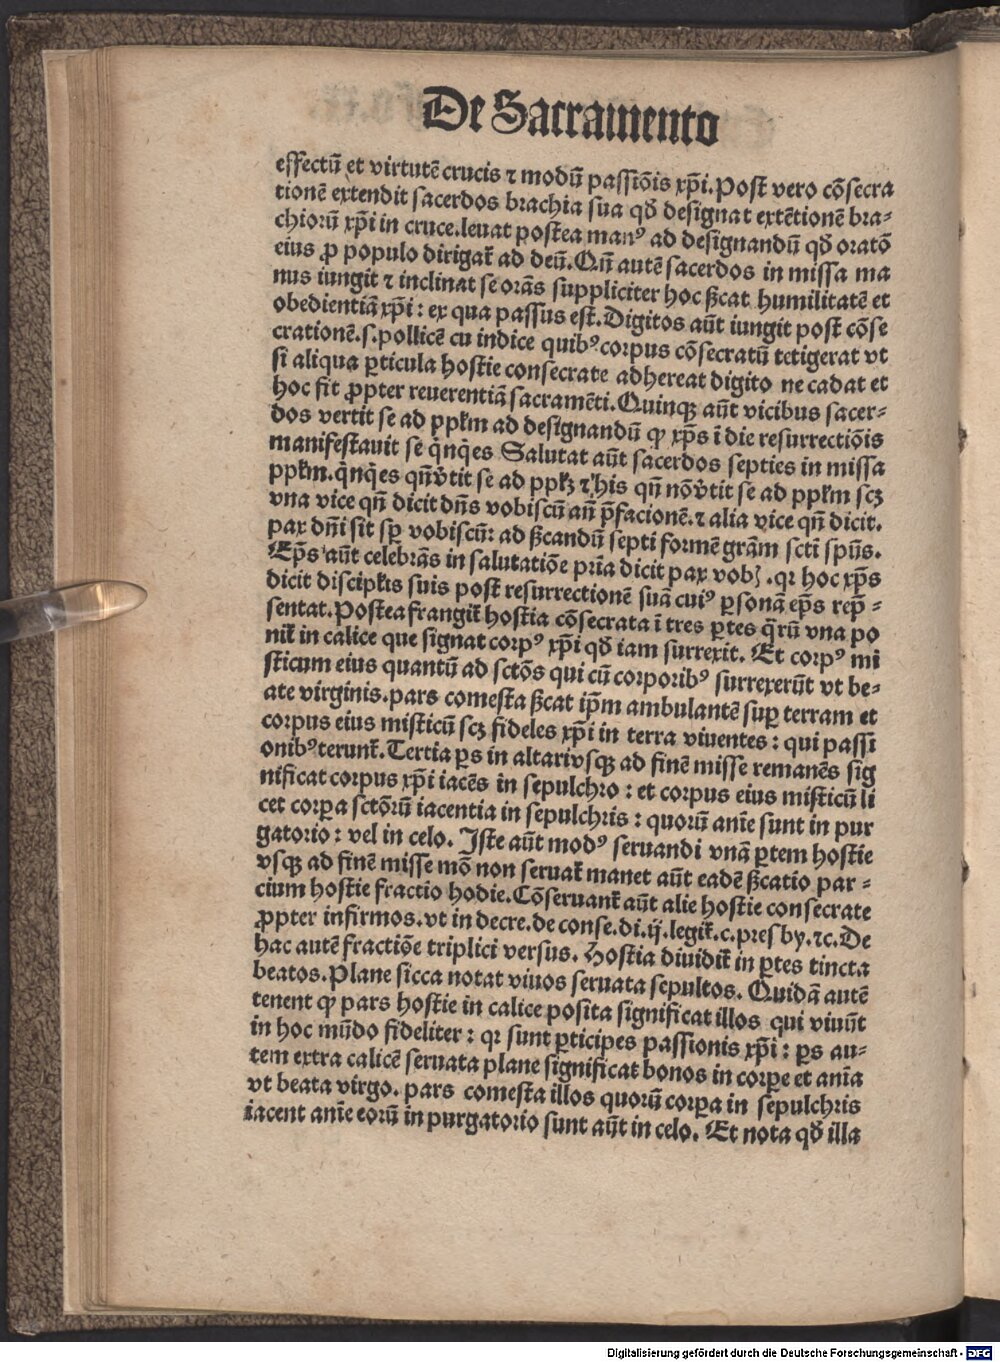 De Sacramento
effectū et virtutē crucis ⁊ modū passiōis xp̄i. Post vero cōsecra
tionē extendit sacerdos brachia sua qđ designat extētionē bra⸗
chiorū xp̄i in cruce. leuat postea manꝰ ad designandū qđ oratō
eius ꝓ populo dirigat̃ ad deū. Qn̄ autē sacerdos in missa ma
nus iungit ⁊ inclinat se orās suppliciter hoc ẜcat humilitatē et
obedientiā xp̄i : ex qua passus est. Digitos aūt iungit post cōse
crationē. s. pollicē cu indice quibꝰ corpus cōsecratū tetigerat vt
si aliqua ꝑticula hostie consecrate adhereat digito ne cadat et
hoc fit ꝓpter reuerentiā sacramēti. Quinqꝫ aūt vicibus sacer⸗
dos vertit se ad ppłm ad designandū ꝙ xp̄s ī die resurrectiōis
manifestauit se q̄nq̄es Salutat aūt sacerdos septies in missa
ppłm. q̄nq̄es qn̄ v̓tit se ad ppłꝫ ⁊ his qn̄ nō v̓tit se ad ppłm scꝫ
vna vice qn̄ dicit dn̄s vobiscū an̄ p̄facionē. ⁊ alia vice qn̄ dicit.
pax dn̄i sit sꝑ vobiscū: ad ẜcandū septi formē grām scti spūs.
Ep̄s aūt celebrās in salutatiōe pria dicit pax vobꝫ . qꝛ hoc xp̄s
dicit discipłis suis post resurrectionē suā cuiꝰ ꝑsonā ep̄s rep̄ ⸗
sentat. Postea frangit̃ hostia cōsecrata ī tres ꝑtes q̄rū vna po
nit̃ in calice que signat corpꝰ xp̄i qđ iam surrexit. Et corpꝰ mi
sticum eius quantū ad sctōs qui cū corporibꝰ surrexerūt vt be⸗
ate virginis. pars comesta ẜcat ip̄m ambulantē suꝑ terram et
corpus eius misticū scꝫ fideles xp̄i in terra viuentes : qui passi
onibꝰ terunt̃. Tertia ꝑs in altari vsqꝫ ad finē misse remanēs sig
nificat corpus xp̄i iacēs in sepulchro : et corpus eius misticū li
cet corꝑa sctōrū iacentia in sepulchris : quorū anīe sunt in pur
gatorio : vel in celo. Iste aūt modꝰ seruandi vnā ꝑtem hostie
vsqꝫ ad finē misse mō non seruat̃ manet aūt eadē ẜcatio par ⸗
cium hostie fractio hodie. Cōseruant̃ aūt alie hostie consecrate
ꝓpter infirmos. vt in decre. de conse. di. ij. legit̃. c. presby. ⁊c. De
hac autē fractiōe triplici versus. Hostia diuidit̃ in ꝑtes tincta
beatos. Plane sicca notat viuos seruata sepultos. Quidā autē
tenent ꝙ pars hostie in calice posita significat illos qui viuūt
in hoc mūdo fideliter : qꝛ sunt ꝑticipes passionis xp̄i : ꝑs au⸗
tem extra calicē seruata plane significat bonos in corꝑe et anīa
vt beata virgo. pars comesta illos quorū corꝑa in sepulchris
iacent anīe eorū in purgatorio sunt aūt in celo. Et nota qđ illa
Digitalisierung gefördert durch die Deutsche Forschungsgemeinschaft - DFG